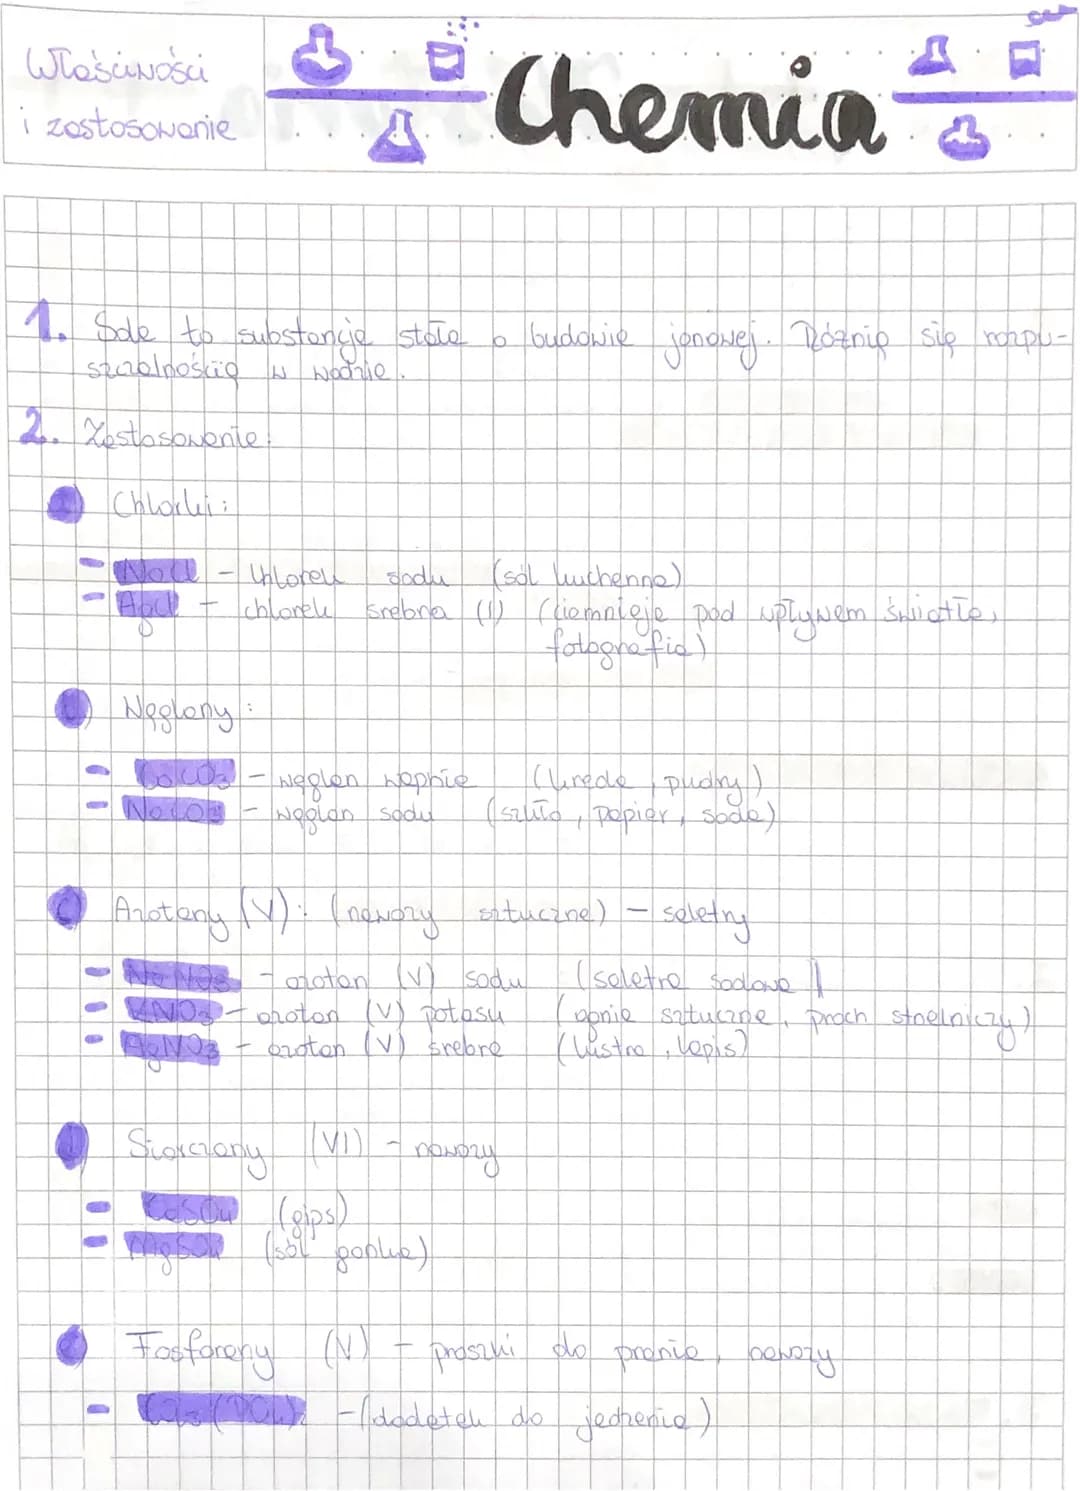 Właściwości
i zastosowanie
Chemia
1. Sole to substancje stałe o budowie jonowej. Różnią się rozpu-
szczalnością w wodzie.
2. Zastosowanie:
a) Chlorki:
- NaCl - chlorek sodu (sól kuchenna)
- AgCl - chlorek srebra (I) (ciemnieje pod wpływem światła,
fotografia)
b) Węglany:
- CaCO3 - węglan wapnia (kreda, pudry)
- NaCO3 - węglan sodu (szkło, papier, soda)
c) Azotany (V): (nawozy sztuczne) - saletry
- NaNO3 - azotan (V) sodu (saletra sodowa)
- KNO3 - azotan (V) potasu (ognie sztuczne, proch strzelniczy)
- AgNO3 - azotan (V) srebra (lustra, lapis)
d) Siarczany (VI) - nawozy
- CaSO4 (gips)
- MgSO4 (sól gorzka)
e) Fosforany (V) - proszki do prania, nawozy
- Ca3(PO4)2 - (dodatek do jedzenia)